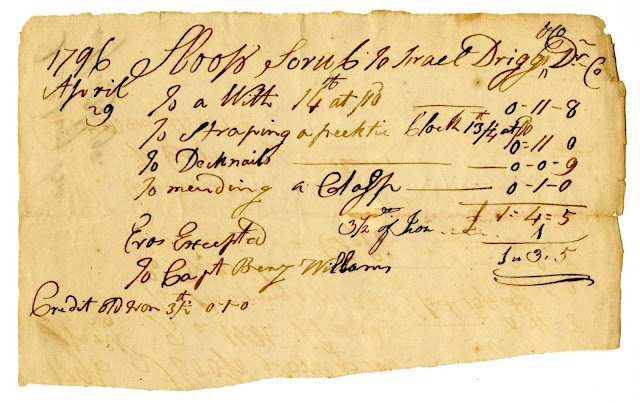 1796 Sloop Scrub to Israel Driggs Dr Co
April To a With 14 lb at 10 0-11-8
29 To Straping a peektie block 13 1/4 at 10 0-11 0
To Decknails 0-0-9
To mending a Clasp 0-1-0
£ 1=4=5
Eros Excepted 3 1/2 of Iron 1
To Capt Benj Williams 1"3"5
Credit old iron 3 1/2 0-1-0